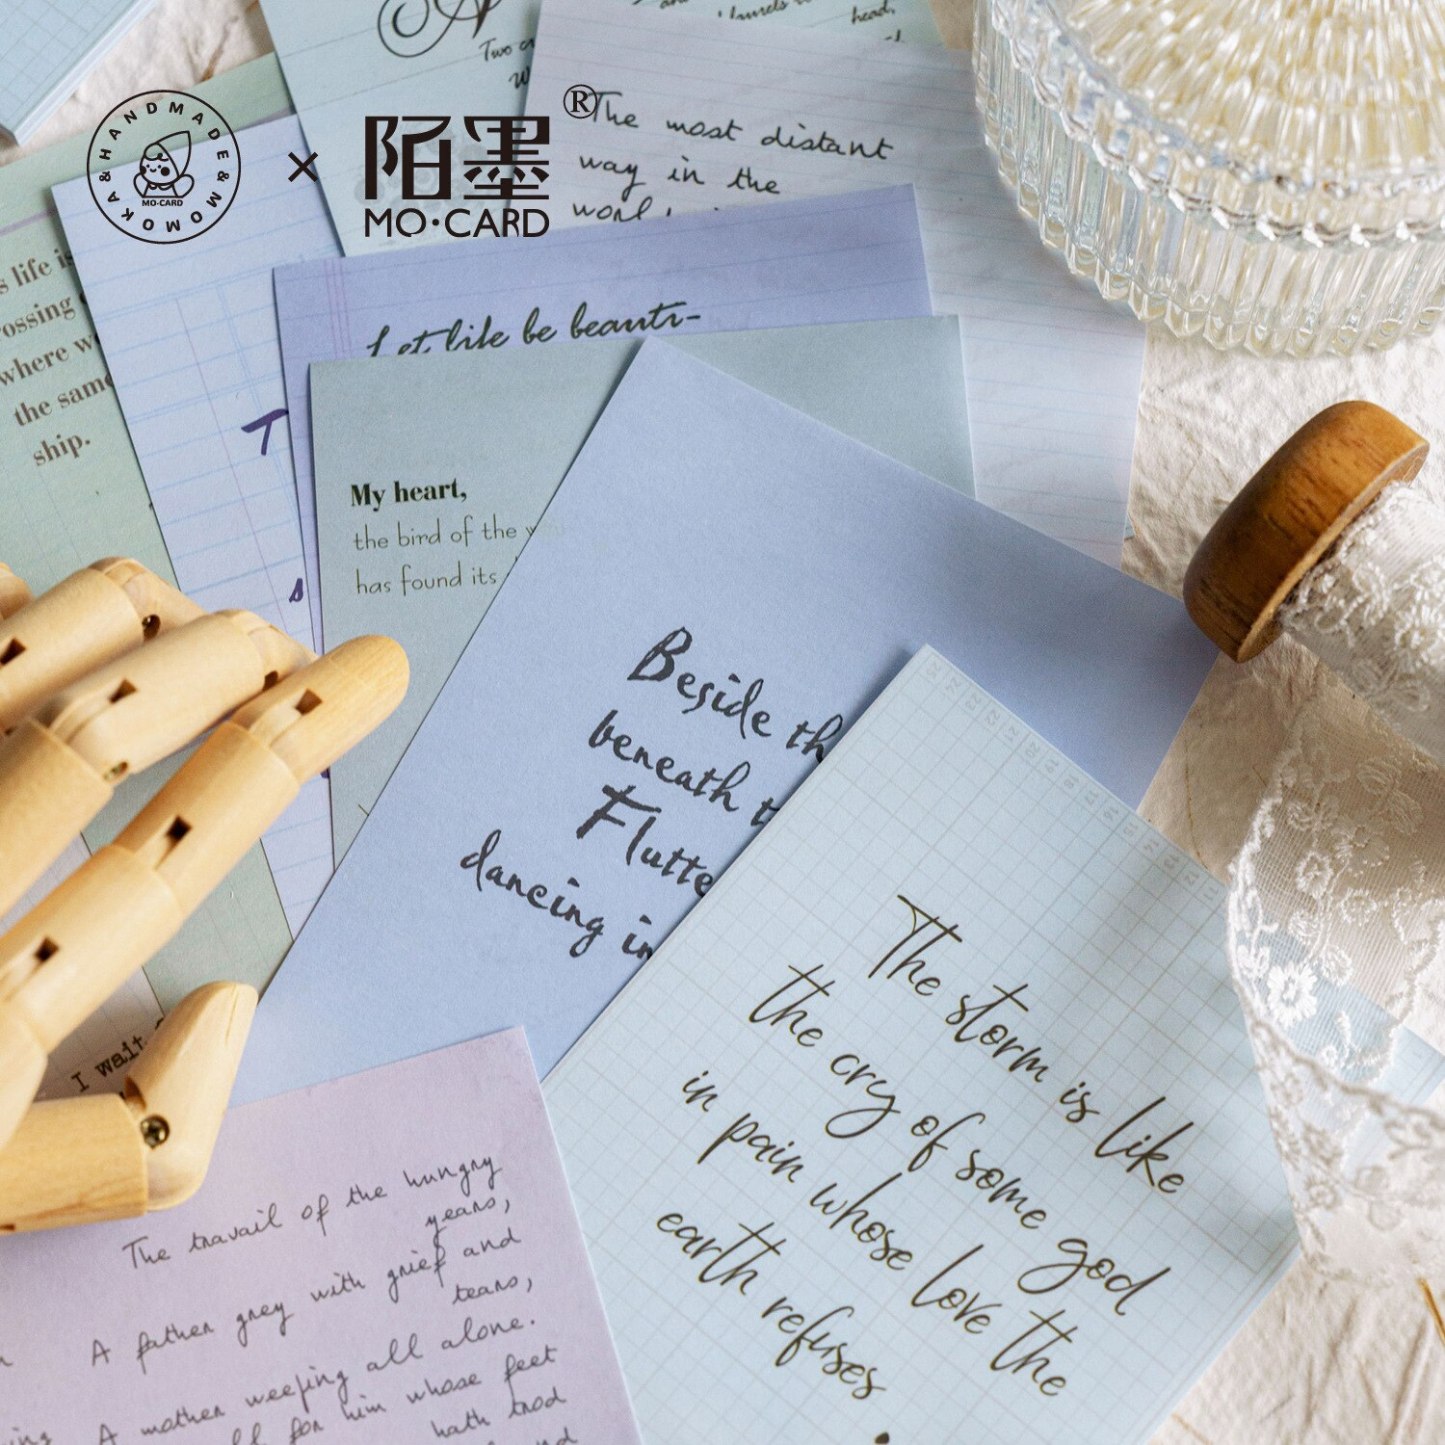 HANDMADE&MOMOKA&
MO-CARD
×
陌墨®
MO·CARD
Two
head,
The most distant
way in the
s life is
where
the same
ship.
Let life be beauti-
T
My heart,
the bird of the
has found its
s
Beside
beneath
dancing in
The storm is like
the cry of some god
in pain whose love the
earth refuses
.
I wait
The travail of the hungry
years,
A father grey with grief and
tears,
A mother weeping all alone.
for him whose feet
hath trod